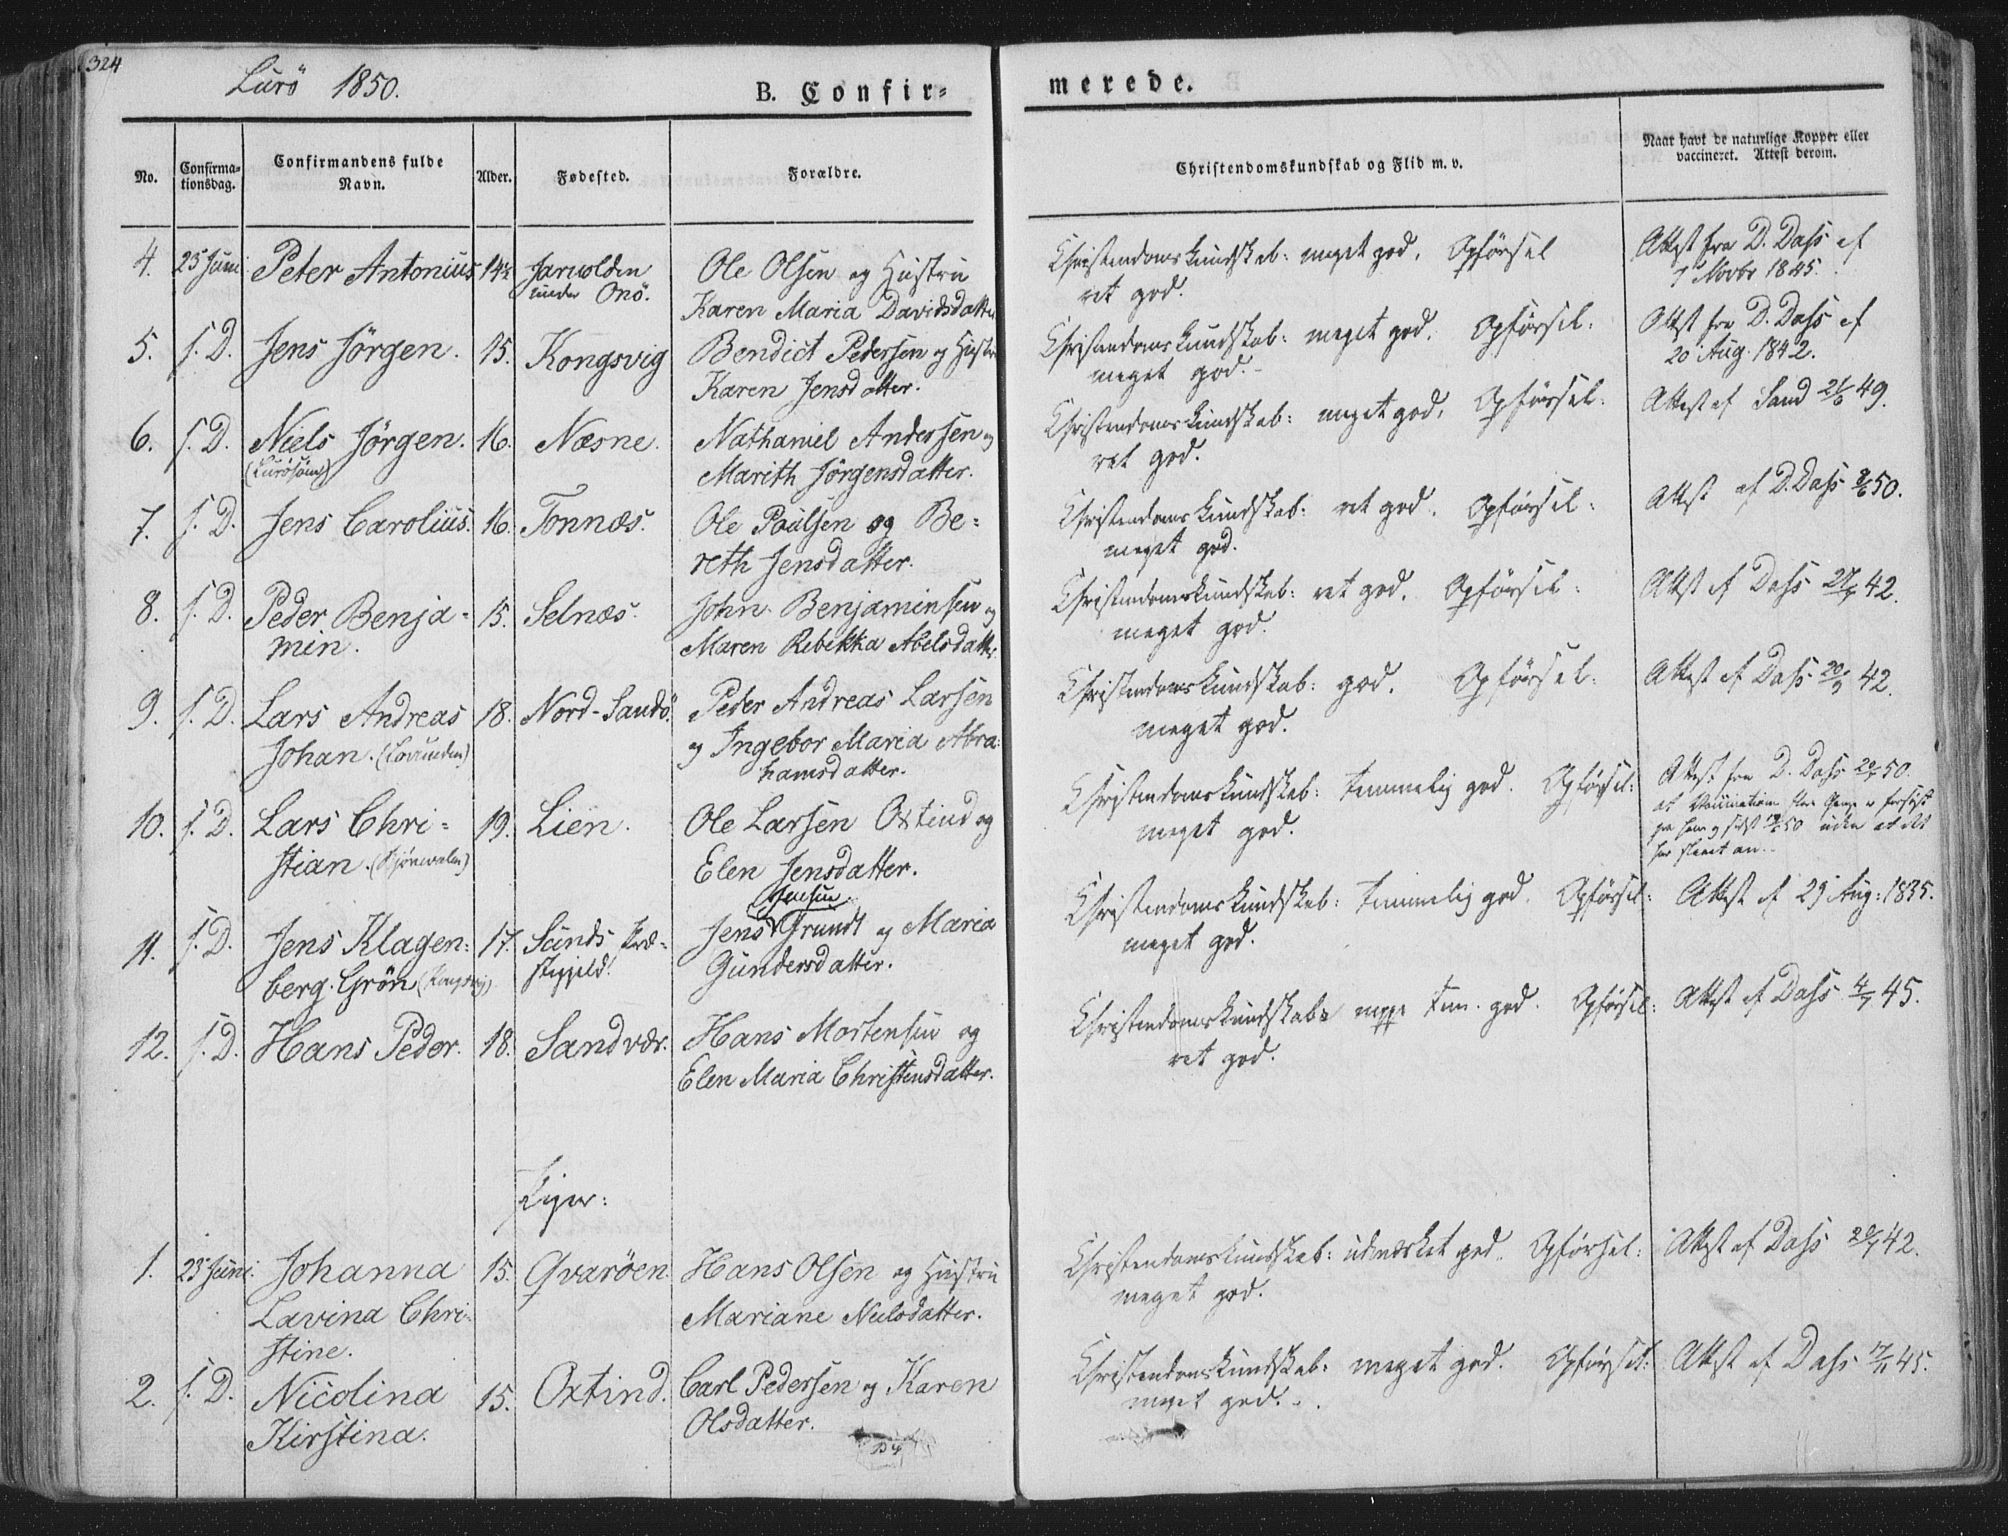 324
Lurö 1850.
B. Confir-
merede.
No.
Confirma-
tionsdag.
Confirmandens fulde
Navn.
Alder.
Fødested.
Forældre.
Christendomskundskab og Flid m. v.
Naar havt de naturlige Kopper eller
vaccineret. Attest derom.
4. 23 Juni Peter Antonius 14½ Jarwolden Ole Olsen og Hustru Christendomskundskab: meget god. Opförsel Attest fra D. Dass af
under Onö. Karen Maria Davidsdatter ret god. 7 Novbr 1845.
5. s. D. Jens Jörgen. 15. Kongsvig Bendict Pedersen og Hustru Christendomskundskab: meget god. Opförsel: Attest fra D. Dass af
Karen Jensdatter. meget god. 20 Aug. 1842.
6. s. D. Niels Jörgen. 16. Næsne. Nathaniel Andersen og Christendomskundskab: meget god. Opförsel: Attest af Sand 49.
Marith Jörgensdatter. ret god.
7. s. D. Jens Carolius. 16. Tonnæs. Ole Poulsen og Be= Christendomskundskab: ret god. Opförsel: Attest af D. Dass 50.
reth Jensdatter. meget god.
8. s. D. Peder Benja= 15. Selnæs. John Benjaminsen og Christendomskundskab: ret god. Opförsel: Attest af Dass 42.
min. Maren Rebekka Abelsdatter. meget god.
9. s. D. Lars Andreas 18. Nord-Sandö. Peder Andreas Larsen Christendomskundskab: god. Opförsel: Attest af Dass 42.
Johan. (Lovunden) og Ingebor Maria Abra= meget god.
hamsdatter.
10. s. D. Lars Chri= 19. Lien. Ole Larsen Oxtind og Christendomskundskab: temmelig god. Opförsel: Attest fra D. Dass 50.
stian. Elen Jensdatter. meget god. at Vaccination flere Gange er forsøgt
uden at det
har slaaet an.
Jensen
11. s. D. Jens Klagen= 17. Sunds Præ= Jens Grundt og Maria Christendomskundskab: temmelig god. Opförsel: Attest af 29 Aug: 1835.
berg Grön stegjeld. Gundersdatter. meget god.
12. s. D. Hans Peder. 18. Sandvær. Hans Mortensen og Christendomskundskab: neppe tem. god. Opförsel: Attest af Dass 45.
Elen Maria Christensdatter. ret god.
Piger:
1. 23 Juni. Johanna 15. Qvaröen. Hans Olsen og Hustru Christendomskundskab: udmærket god. Opförsel: Attest af Dass 42.
Lavina Chri- Mariane Nielsdatter. meget god.
stine.
2. s. D. Nicolina 15. Oxtind. Carl Pedersen og Karen Christendomskundskab: meget god. Opförsel: Attest af Dass 45.
Kirstina. Olsdatter. meget god.